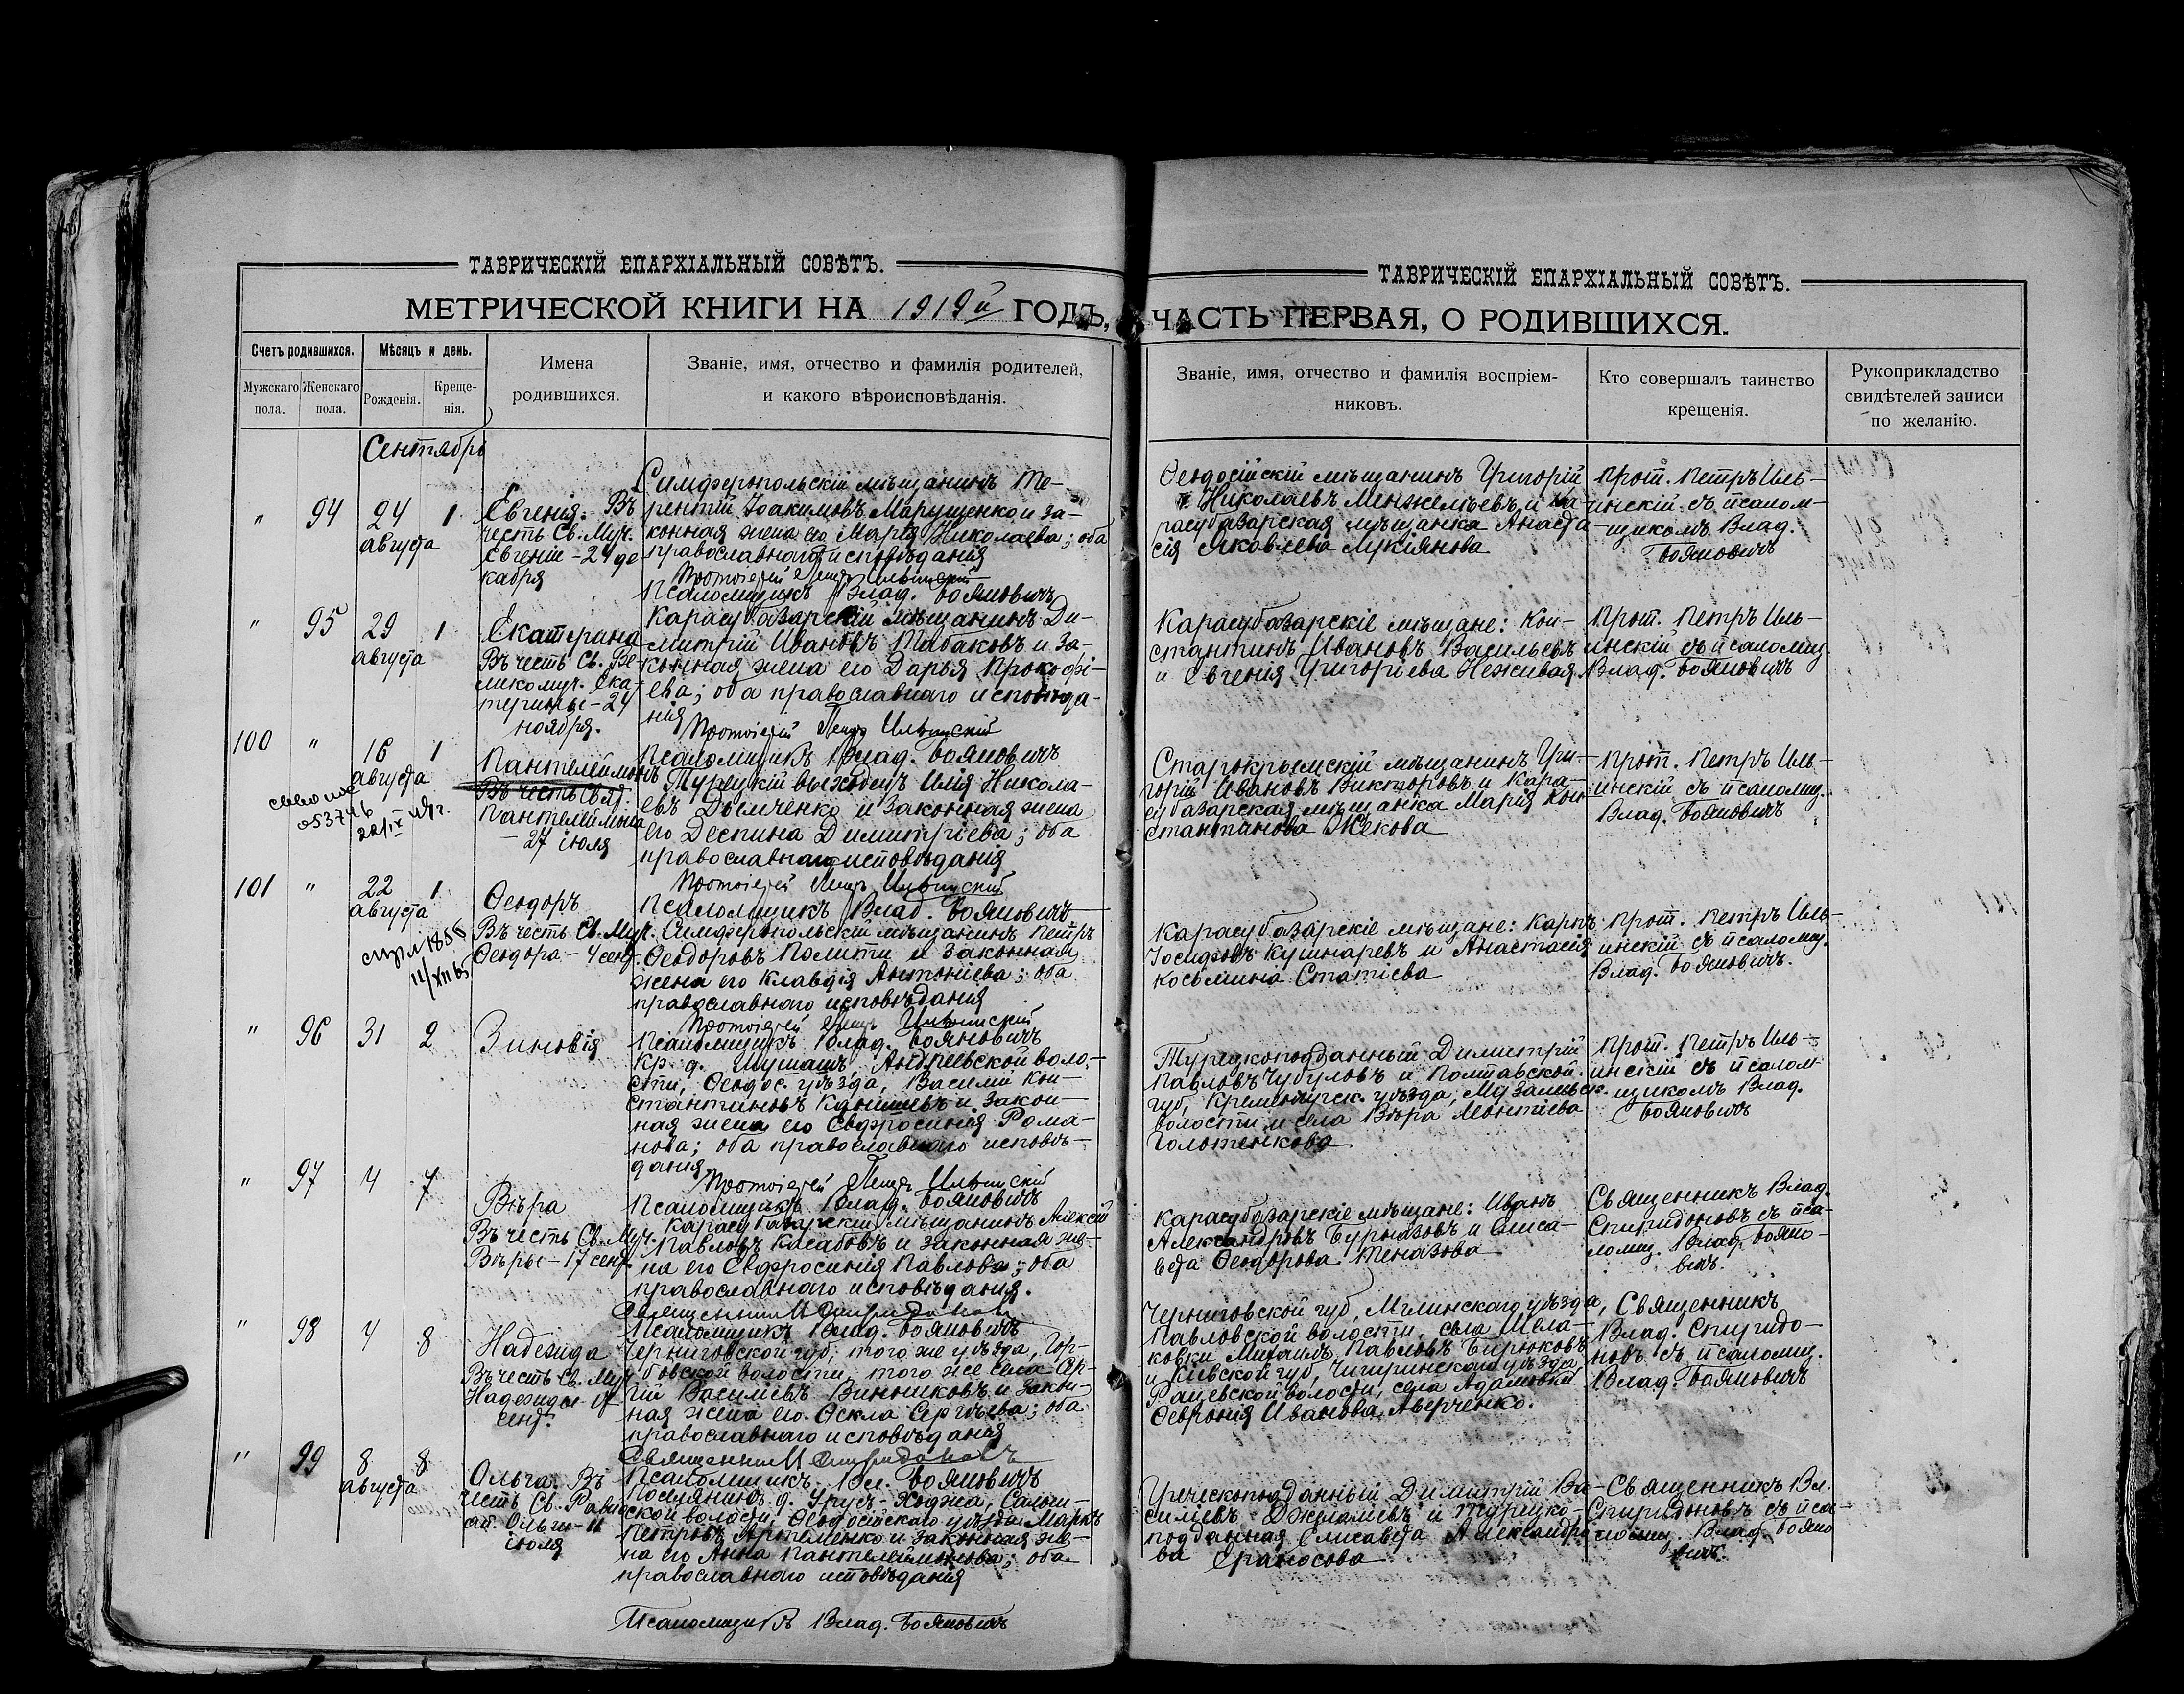 ТАВРИЧЕСКІЙ ЕПАРХІАЛЬНЫЙ СОВѢТЪ.
МЕТРИЧЕСКОЙ КНИГИ НА 1919й ГОДЪ,
Счетъ родившихся.
Мужскаго пола.
Женскаго пола.
Мѣсяцъ и день.
Рожденія.
Креще-
нія.
Имена
родившихся.
Званіе, имя, отчество и фамилія родителей,
и какого вѣроисповѣданія.
ТАВРИЧЕСКІЙ ЕПАРХІАЛЬНЫЙ СОВѢТЪ.
ЧАСТЬ ПЕРВАЯ, О РОДИВШИХСЯ.
Званіе, имя, отчество и фамилія воспріем-
никовъ.
Кто совершалъ таинство
крещенія.
Рукоприкладство
свидѣтелей записи
по желанію.
Сентябрь
" 94 24 августа 1
Евгенія. Въ
честь Св. Муч.
Евгеніи - 24 де
кабря
Симферопольскій мѣщанинъ Те-
рентій Іоакимовъ Марущенко и за-
конная жена его Марія Николаева; оба
православнаго исповѣданія
Протоіерей Петръ Ильинскій
Псаломщикъ Влад. Бояновичъ
Ѳеодосійскій мѣщанинъ Григорій
Николаевъ Менжелѣевъ и Ка-
расубазарская мѣщанка Анаста-
сія Яковлева Лукіянова
Прот. Петръ Иль-
инскій съ псалом-
щикомъ Влад.
Бояновичъ
" 95 29 августа 1
Екатерина
Въ честь Св. Ве-
ликомуч. Ека-
терины - 24
ноября.
Карасубазарскій мѣщанинъ Ди-
митрій Ивановъ Табаковъ и за-
конная жена его Дарья Прокофі-
ева; оба православнаго исповѣда-
нія
Протоіерей Петръ Ильинскій
Псаломщикъ Влад. Бояновичъ
Карасубазарскіе мѣщане: Кон-
стантинъ Ивановъ Васильевъ
и Евгенія Григоріева Неживая
Прот. Петръ Иль-
инскій съ псаломщ.
Влад. Бояновичъ
100 " 16 августа 1
053746
Пантелеймонъ
Въ честь Св.
Пантелеймона
- 27 іюля
Турецкій выходецъ Илія Никола-
евъ и законная жена
его Деспина Димитріева; оба
православнаго исповѣданія
Протоіерей Петръ Ильинскій
Псаломщикъ Влад. Бояновичъ
Старокрымскій мѣщанинъ Гри-
горій Ивановъ Викторовъ и Кара-
субазарская мѣщанка Марія Кон-
стантинова Жекова
Прот. Петръ Иль-
инскій съ псаломщ.
Влад. Бояновичъ
101 " 22 августа 1
Ѳеодоръ
Въ честь Св. Муч.
Ѳеодора - 4 сент.
Симферопольскій мѣщанинъ Петръ
Ѳеодоровъ Полити и законная
жена его Клавдія Антоніева; оба
православнаго исповѣданія
Протоіерей Петръ Ильинскій
Псаломщикъ Влад. Бояновичъ
Карасубазарскіе мѣщане: Карпъ
Іосифовъ Кушнаревъ и Анастасія
Косьмина Статіева
Прот. Петръ Иль-
инскій съ псаломщ.
Влад. Бояновичъ.
" 96 31 2
Зиновія
Кр. д. Андреевской воло-
сти, Ѳеодос. уѣзда, Василій Кон-
стантиновъ и закон-
ная жена его Евфросинія Рома-
нова; оба православнаго исповѣ-
данія.
Протоіерей Петръ Ильинскій
Псаломщикъ Влад. Бояновичъ
Турецкоподданный Димитрій
Павловъ Чубуловъ и Полтавской
губ, Кременчугск. уѣзда,
волости и села Вѣра Леонтіева
Голотенкова
Прот. Петръ Иль-
инскій съ псалом-
щикомъ Влад.
Бояновичъ
" 97 4 7
Вѣра
Въ честь Св. Муч.
Вѣры - 17 сент.
Карасубазарскій мѣщанинъ Алексій
Павловъ Касабовъ и законная же-
на его Евфросинія Павлова; оба
православнаго исповѣданія.
Псаломщикъ Влад. Бояновичъ
Карасубазарскіе мѣщане: Иванъ
Александровъ Бурназовъ и Елиса-
вета Ѳеодорова Теназова
Священникъ Влад.
Спиридоновъ съ пса-
ломщ. Влад. Бояно-
вичъ.
" 98 4 8
Надежда
Въ честь Св. Муч.
Надежды 17
сент.
Черниговской губ, того же уѣзда,
волости, того же села Сер-
гій Василіевъ Винниковъ и закон-
ная жена его Ѳекла Сергѣева; оба
православнаго исповѣданія
Псаломщикъ Вл. Бояновичъ
Черниговской губ, Мглинскаго уѣзда,
Павловской волости, села
Михаилъ Павловъ Бирюковъ
и Кіевской губ, Чигиринскаго уѣзда,
волости, села Адамовки
Февронія Иванова Аверченко.
Священникъ
Влад. Спиридо-
новъ съ псаломщ.
Влад. Бояновичъ
" 99 8 августа 8
Ольга. Въ
честь Св. Равно
ап. Ольги - 11
іюля
Поселянинъ д. Урусъ-Ходжа,
волости, Ѳеодосійскаго уѣзда Маркъ
Петровъ Артеменко и законная же-
на его Анна Пантелеймонова; оба
православнаго исповѣданія
Псаломщикъ Влад. Бояновичъ
Греческоподданный Димитрій Ва-
силіевъ и турецко-
подданная Елисавета Александро
ва
Священникъ Вл.
Спиридоновъ съ пса-
ломщ. Влад. Бояно
вичъ.